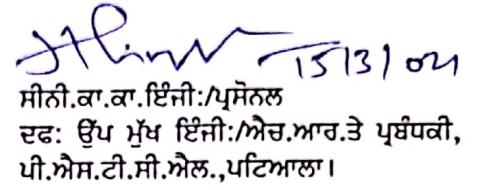 15/3/24
ਸੀਨੀ.ਕਾ.ਕਾ.ਇੰਜੀ:/ਪ੍ਰਸੋਨਲ
ਦਫ: ਉੱਪ ਮੁੱਖ ਇੰਜੀ:/ਐਚ.ਆਰ.ਤੇ ਪ੍ਰਬੰਧਕੀ,
ਪੀ.ਐਸ.ਟੀ.ਸੀ.ਐਲ.,ਪਟਿਆਲਾ।